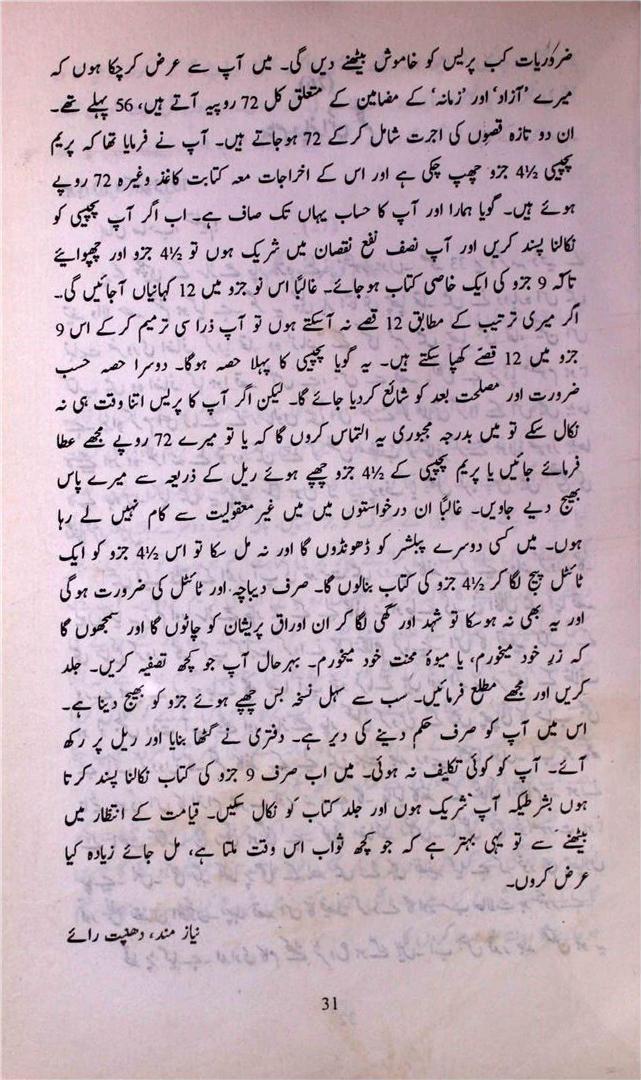 ضروریات کب پریس کو خاموش بیٹھنے دیں گی۔ میں آپ سے عرض کرچکا ہوں کہ
میرے ’آزاد‘ اور ’زمانہ‘ کے مضامین کے متعلق کل 72 روپیہ آتے ہیں، 56 پہلے تھے۔
ان دو تازہ قصوں کی اجرت شامل کرکے 72 ہوجاتے ہیں۔ آپ نے فرمایا تھا کہ پریم
پچیسی 4½ جزو چھپ چکی ہے اور اس کے اخراجات معہ کتابت کاغذ وغیرہ 72 روپے
ہوئے ہیں۔ گویا ہمارا اور آپ کا حساب یہاں تک صاف ہے۔ اب اگر آپ پچیسی کو
نکالنا پسند کریں اور آپ نصف نفع نقصان میں شریک ہوں تو 4½ جزو اور چھپوایئے
تاکہ 9 جزو کی ایک خاصی کتاب ہوجائے۔ غالبًا اس نو جزو میں 12 کہانیاں آجائیں گی۔
اگر میری ترتیب کے مطابق 12 قصے نہ آسکتے ہوں تو آپ ذرا سی ترمیم کرکے اس 9
جزو میں 12 قصّے کھپا سکتے ہیں۔ یہ گویا پچیسی کا پہلا حصہ ہوگا۔ دوسرا حصہ حسب
ضرورت اور مصلحت بعد کو شائع کردیا جائے گا۔ لیکن اگر آپ کا پریس اتنا وقت ہی نہ
نکال سکے تو میں بدرجہ مجبوری یہ التماس کروں گا کہ یا تو میرے 72 روپے مجھے عطا
فرمائے جائیں یا پریم پچیسی کے 4½ جزو چھپے ہوئے ریل کے ذریعہ سے میرے پاس
بھیج دیے جاویں۔ غالبًا ان درخواستوں میں میں غیر معقولیت سے کام نہیں لے رہا
ہوں۔ میں کسی دوسرے پبلشر کو ڈھونڈوں گا اور نہ مل سکا تو اس 4½ جزو کو ایک
ٹائٹل پیج لگا کر 4½ جزو کی کتاب بنالوں گا۔ صرف دیباچہ اور ٹائٹل کی ضرورت ہوگی
اور یہ بھی نہ ہوسکا تو شہد اور گھی لگا کر ان اوراق پریشان کو چاٹوں گا اور سمجھوں گا
کہ زرِ خود میخورم، یا میوۂ محنت خود میخورم۔ بہرحال آپ جو کچھ تصفیہ کریں۔ جلد
کریں اور مجھے مطلع فرمائیں۔ سب سے سہل نسخہ بس چھپے ہوئے جزو کو بھیج دینا ہے۔
اس میں آپ کو صرف حکم دینے کی دیر ہے۔ دفتری نے گٹھا بنایا اور ریل پر رکھ
آئے۔ آپ کو کوئی تکلیف نہ ہوئی۔ میں اب صرف 9 جزو کی کتاب نکالنا پسند کرتا
ہوں بشرطیکہ آپ شریک ہوں اور جلد کتاب کو نکال سکیں۔ قیامت کے انتظار میں
بیٹھنے سے تو یہی بہتر ہے کہ جو کچھ ثواب اس وقت ملتا ہے، مل جائے زیادہ کیا
عرض کروں۔
نیاز مند، دھنپت رائے
31